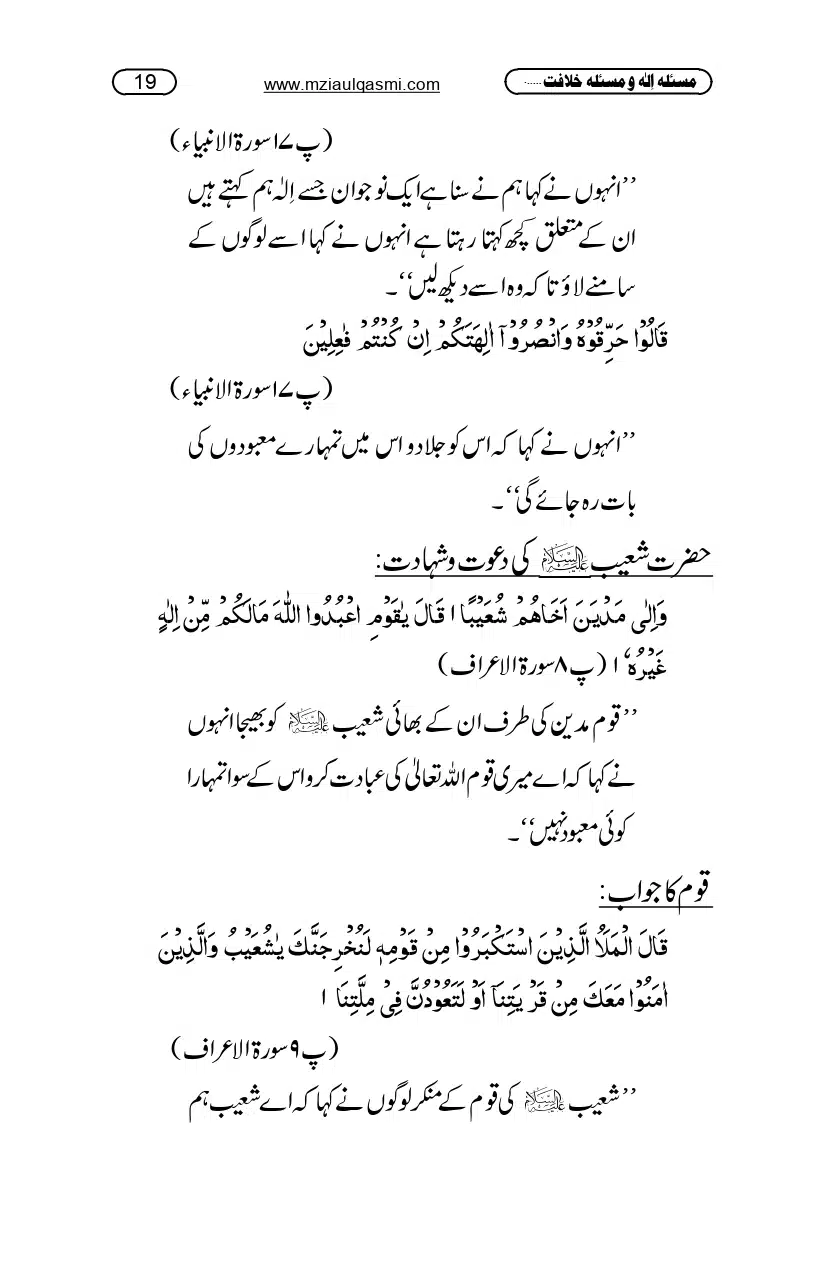 مسئلہ اِلٰہ و مسئلہ خلافت ...... www.mziaulqasmi.com 19
(پ۱۷ سورۃ الانبیاء)
’’انہوں نے کہا ہم نے سنا ہے ایک نوجوان جسے اِلٰہ ہم کہتے ہیں
ان کے متعلق کچھ کہتا رہتا ہے انہوں نے کہا اسے لوگوں کے
سامنے لاؤ تا کہ وہ اسے دیکھ لیں‘‘۔
قَالُوْا حَرِّقُوْهُ وَانْصُرُوْٓا اٰلِهَتَكُمْ اِنْ كُنْتُمْ فٰعِلِيْنَ
(پ۱۷ سورۃ الانبیاء)
’’انہوں نے کہا کہ اس کو جلا دو اس میں تمہارے معبودوں کی
بات رہ جائے گی‘‘۔
حضرت شعیب علیہ السلام کی دعوت و شہادت:
وَاِلٰى مَدْيَنَ اَخَاهُمْ شُعَيْبًا ا قَالَ يٰقَوْمِ اعْبُدُوا اللّٰهَ مَالَكُمْ مِّنْ اِلٰهٍ
غَيْرُهٗ ا (پ۸ سورۃ الاعراف)
’’قوم مدین کی طرف ان کے بھائی شعیب علیہ السلام کو بھیجا انہوں
نے کہا کہ اے میری قوم اللہ تعالیٰ کی عبادت کرو اس کے سوا تمہارا
کوئی معبود نہیں‘‘۔
قوم کا جواب:
قَالَ الْمَلَاُ الَّذِيْنَ اسْتَكْبَرُوْا مِنْ قَوْمِهٖ لَنُخْرِجَنَّكَ يٰشُعَيْبُ وَالَّذِيْنَ
اٰمَنُوْا مَعَكَ مِنْ قَرْيَتِنَآ اَوْ لَتَعُوْدُنَّ فِىْ مِلَّتِنَا ا
(پ۹ سورۃ الاعراف)
’’شعیب علیہ السلام کی قوم کے منکر لوگوں نے کہا کہ اے شعیب ہم